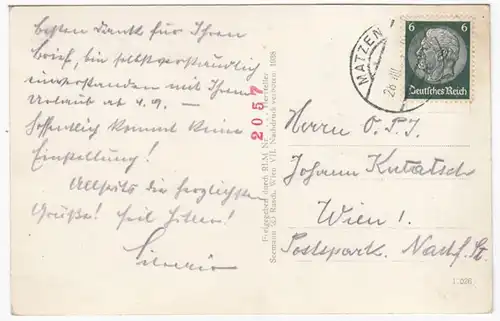 besten Dank für Ihren
Brief, bin selbstverständlich
einverstanden mit Ihrem
Urlaub ab 4.9. –
Hoffentlich kommt keine
Einstellung!
Allseits die herzlichsten
Grüße! Heil Hitler!
2057
Freigegeben durch RLM. Nr. Hersteller 1938
Wien VII. Nachdruck verboten!
MATZEN
6 6
Deutsches Reich
Herrn O.P.I.
Johann
Wien 1.
Postspark.